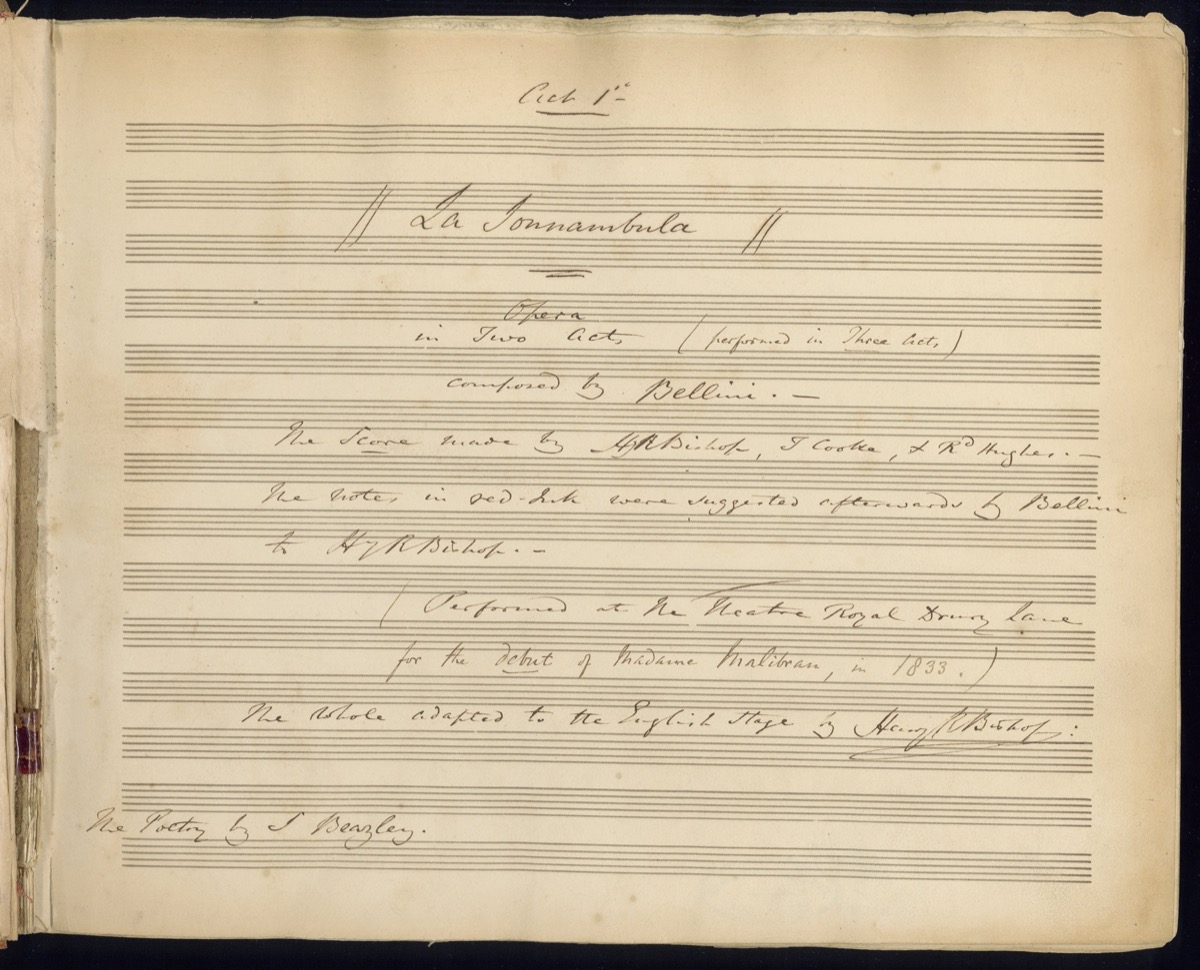 Act 1st
La Sonnambula
Opera
in Two Acts (performed in Three Acts)
composed by Bellini. —
The Score made by HyRBishop, T Cooke, & Rd Hughes. —
The notes in red-Ink were suggested afterwards by Bellini
to Hy R Bishop. —
(Performed at the Theatre Royal Drury Lane
for the debut of Madame Malibran, in 1833.)
The whole adapted to the English Stage by Henry R Bishop:
The Poetry by S Beazley.